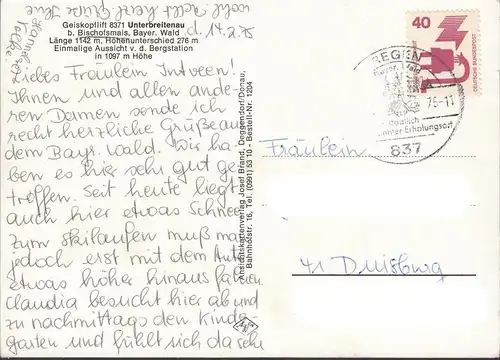 Geiskopflift 8371 Unterbreitenau
b. Bischofsmais, Bayer. Wald
Länge 1142 m, Höhenunterschied 276 m
Einmalige Aussicht v. d. Bergstation
in 1097 m Höhe
d. 14.2.75
Liebes Fräulein Intveen!
Ihnen und allen ande-
ren Damen sende ich
recht herzliche Grüße aus
dem Bayr. Wald. Wir ha-
ben es hier sehr gut ge-
troffen. Seit heute liegt
auch hier etwas Schnee
Zum Skilaufen muß man
jedoch erst mit dem Auto
etwas höher hinaus fahren.
Claudia besucht hier ab und
zu nachmittags den Kinder-
garten und fühlt sich da sehr
wohl
Ihre
Ansichtskartenverlag Josef Brandl, Deggendorf/Donau,
Bahnhofstr. 16, Tel. (0991) 53 10 - Bestell-Nr. 1204
40
DEUTSCHE BUNDESPOST
REGEN
75-11
Erholungsort
837
Fräulein
41 Duisburg